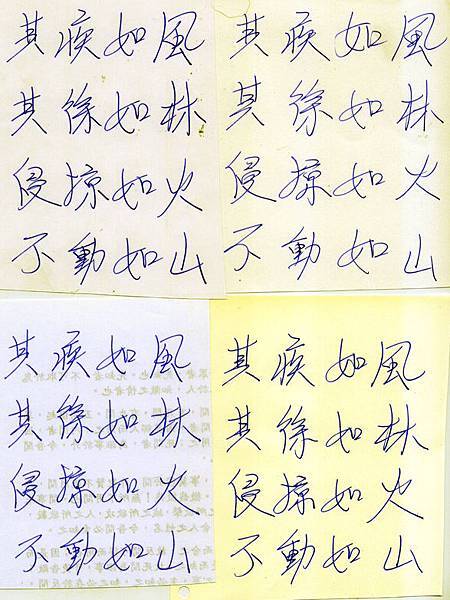 其疾如風
其徐如林
侵掠如火
不動如山
其疾如風
其徐如林
侵掠如火
不動如山
其疾如風
其徐如林
侵掠如火
不動如山
其疾如風
其徐如林
侵掠如火
不動如山